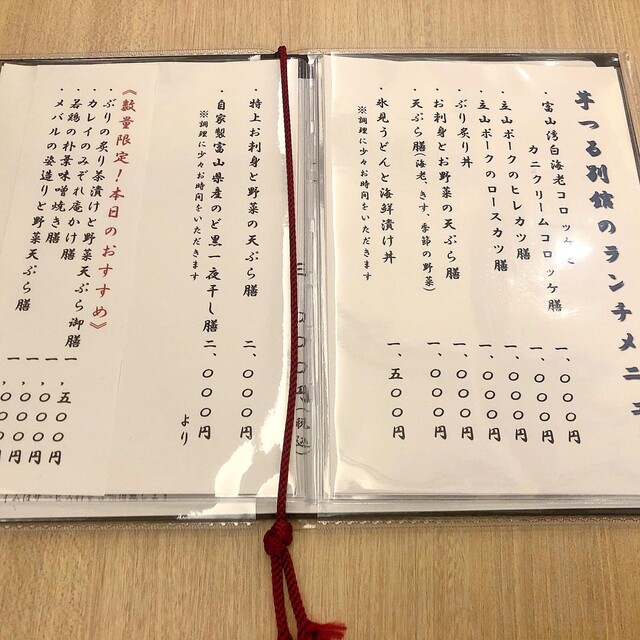 芋つる別館のランチメニュ
・富山湾白海老コロッケと
カニクリームコロッケ膳 一、〇〇〇円
・立山ポークのヒレカツ膳 一、〇〇〇円
・立山ポークのロースカツ膳 一、〇〇〇円
・ぶり炙り丼 一、〇〇〇円
・お刺身とお野菜の天ぷら膳 一、〇〇〇円
・天ぷら膳(海老、きす、季節の野菜) 一、〇〇〇円
・氷見うどんと海鮮漬け丼 一、五〇〇円
※調理に少々お時間をいただきます
・特上お刺身と野菜の天ぷら膳 二、〇〇〇円
・自家製富山県産のど黒一夜干し膳 二、〇〇〇円より
※調理に少々お時間をいただきます
《数量限定!本日のおすすめ》
・ぶりの炙り茶漬けと野菜天ぷら御膳 一、五〇〇円
・カレイのみぞれ庵かけ膳 一、〇〇〇円
・若鶏の朴葉味噌焼き膳 一、〇〇〇円
・メバルの姿造りと野菜天ぷら膳